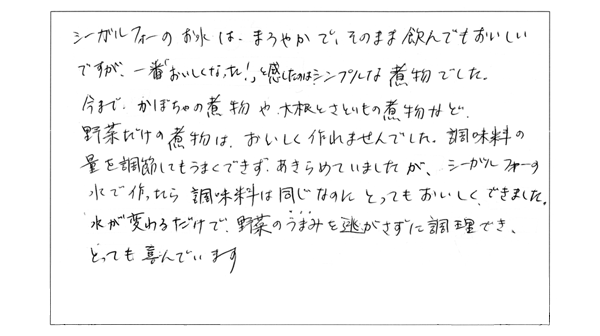 シーガルフォーのお水は、まろやかで、そのまま飲んでもおいしい
ですが、一番「おいしくなった!」と感じたのはシンプルな煮物でした。
今まで、かぼちゃの煮物や、大根とさといもの煮物など、
野菜だけの煮物は、おいしく作れませんでした。調味料の
量を調節してもうまくできず、あきらめていましたが、シーガルフォーの
水で作ったら調味料は同じなのにとってもおいしくできました。
水が変わるだけで、野菜のうまみを逃がさずに調理でき、
とっても喜んでいます